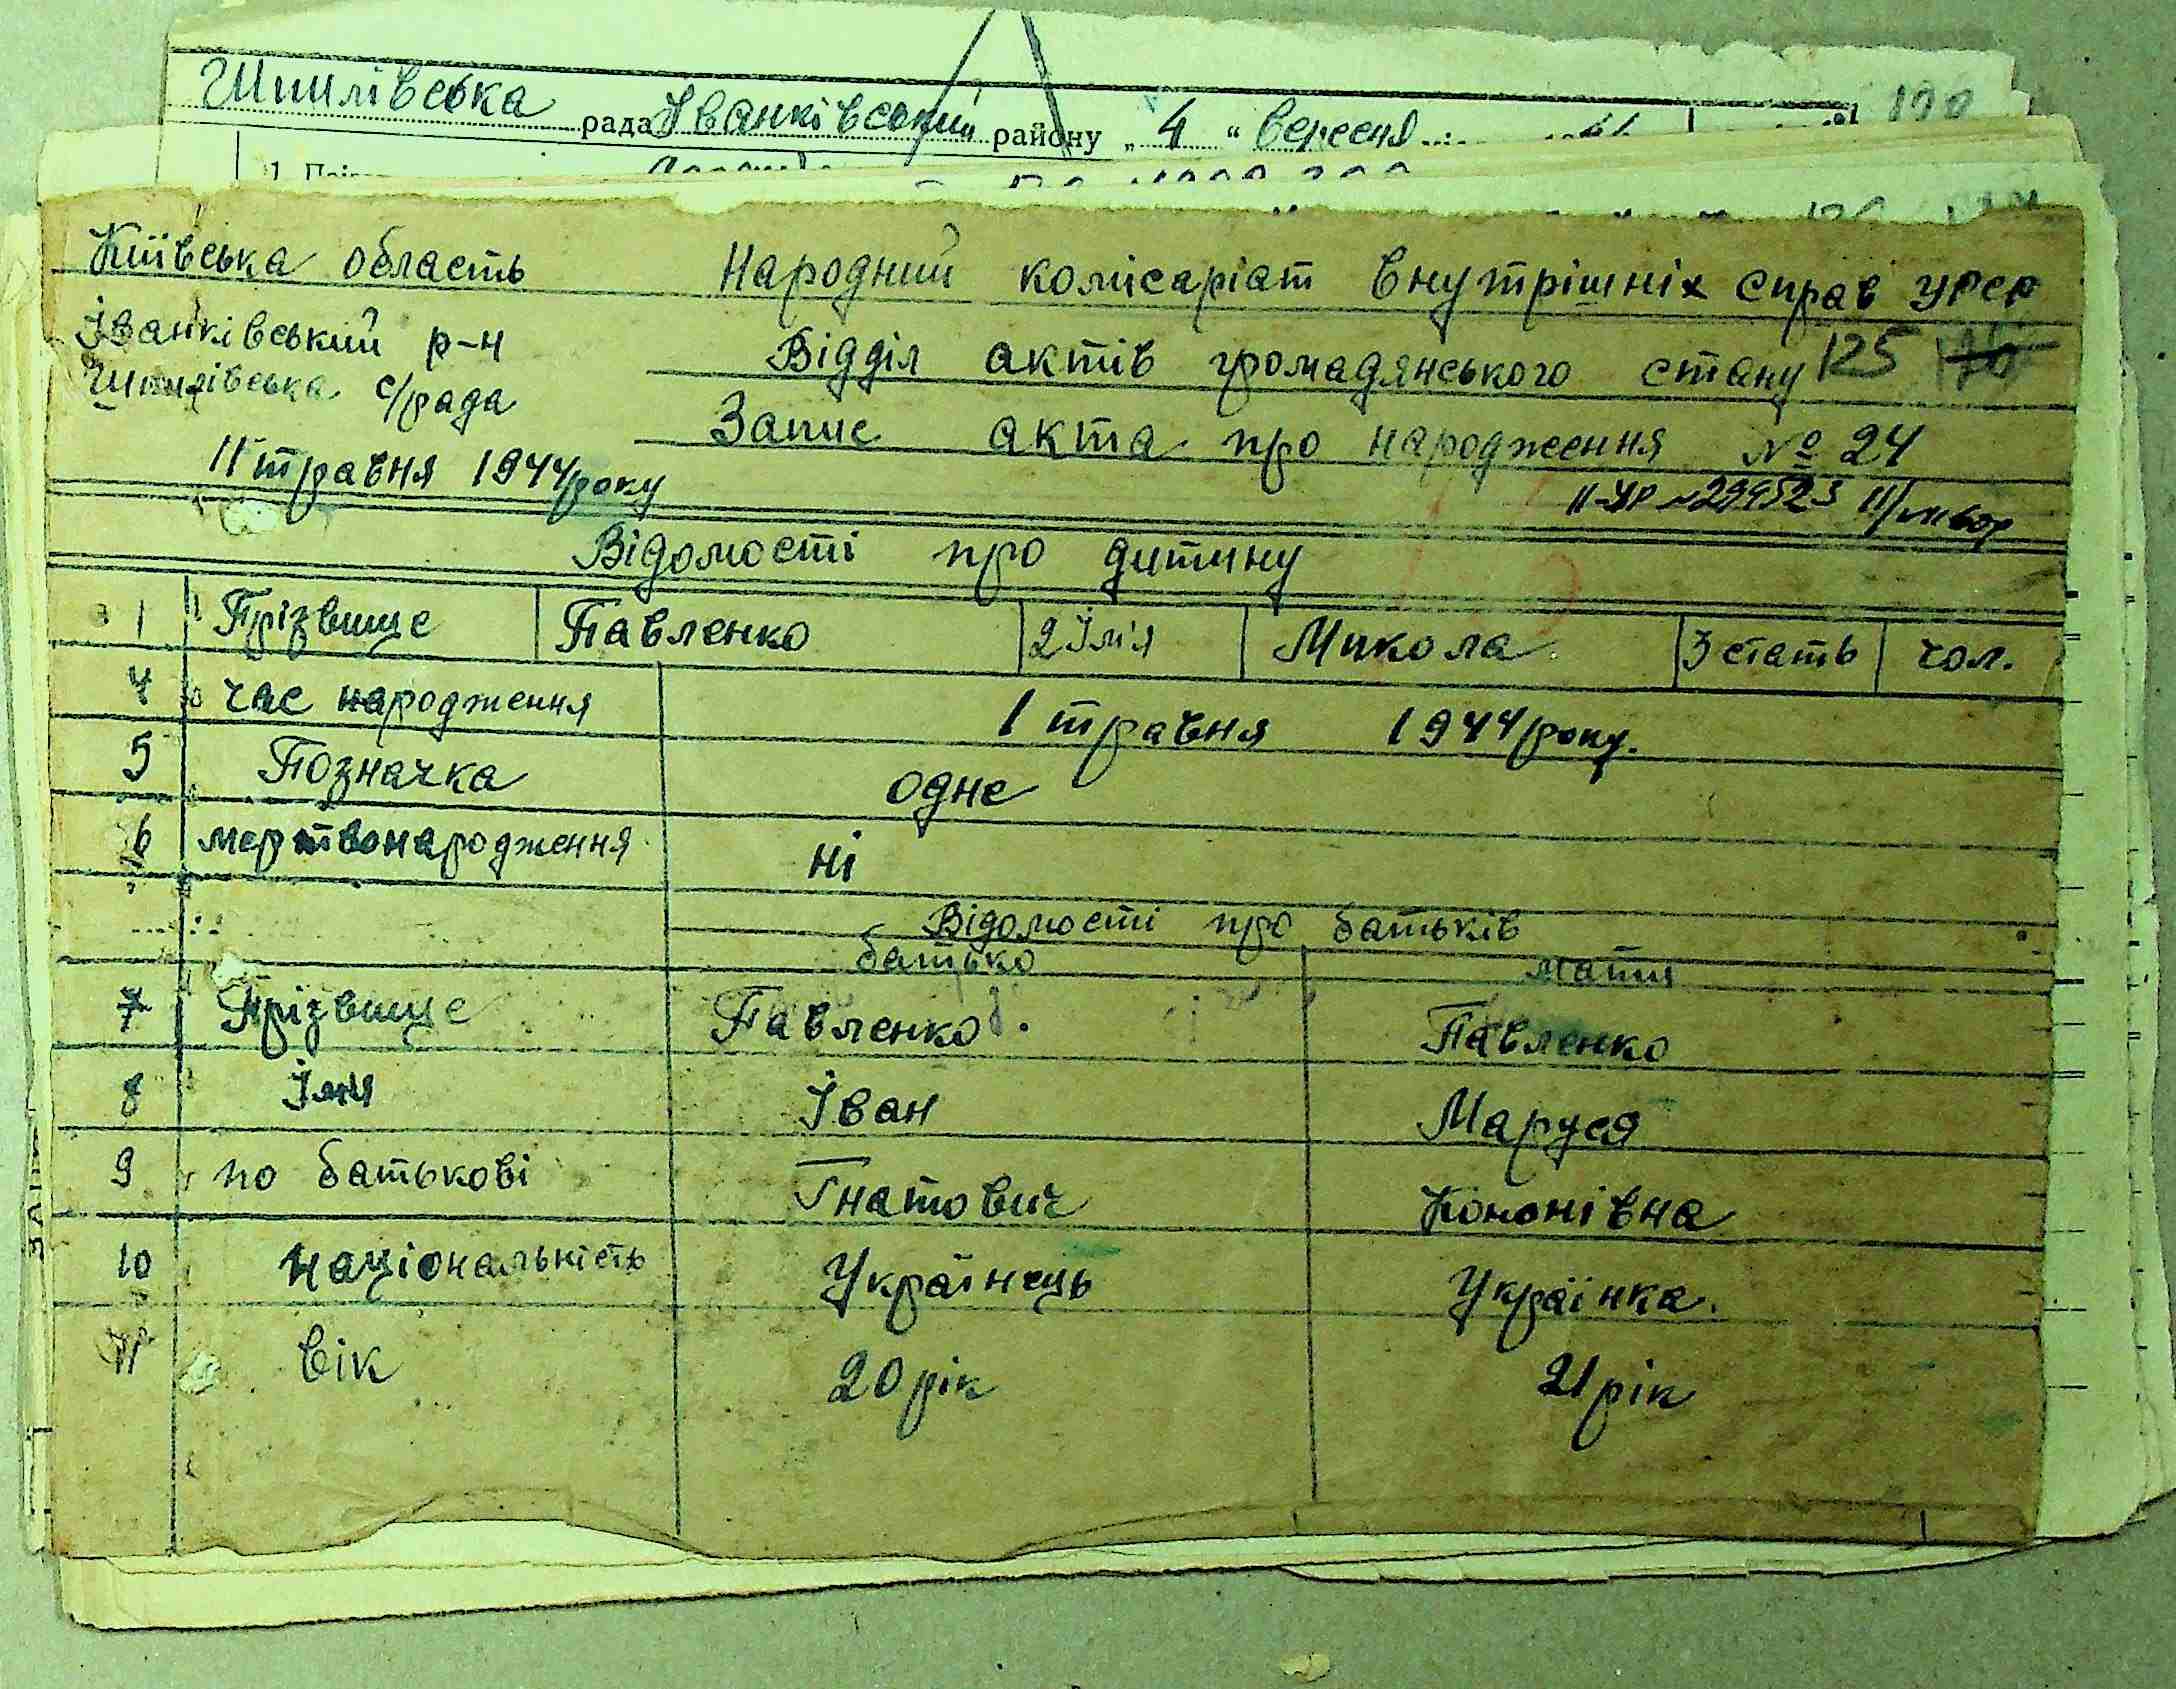 Шпилівська рада Іванківський району „ 4 “ вересня
Київська область Народний комісаріат внутрішніх справ УРСР
Іванківський р-н Відділ актів громадянського стану 125
Шпилівська с/рада
Запис акта про народження № 24
11 травня 1944 року
II-УР №299523
Відомості про дитину
1 Прізвище Павленко 2 Ім'я Микола 3 стать чол.
4 час народження 1 травня 1944 року.
5 Позначка одне
6 мертвонародження ні
Відомості про батьків
батько мати
7 Прізвище Павленко Павленко
8 Імя Іван Маруся
9 по батькові Гнатович Кононівна
10 національність Українець Українка.
11 вік 20 рік 21 рік